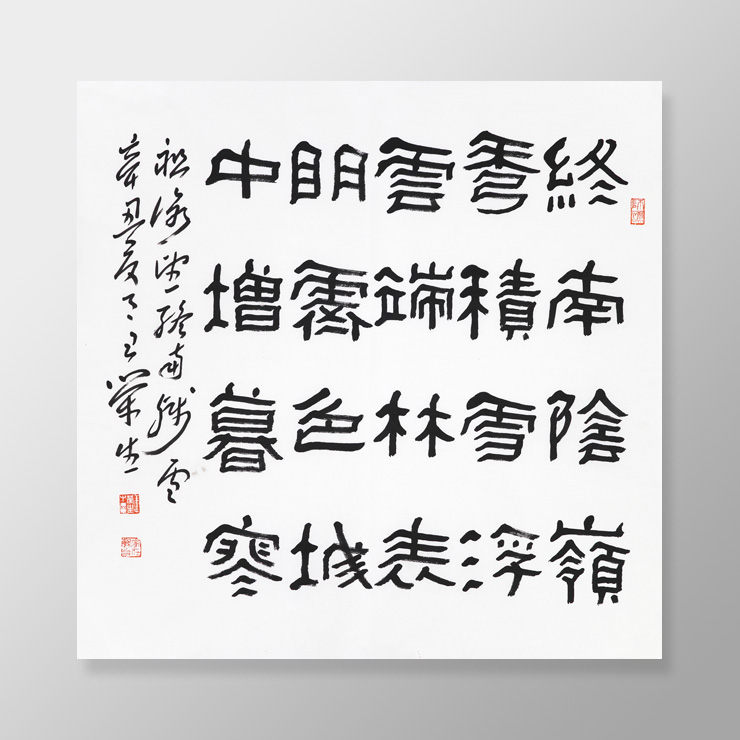 終南陰嶺
秀積雪浮
雲端林表
眀霽色城
中增暮寒
祖詠望終南殘雪
辛丑夏王榮生